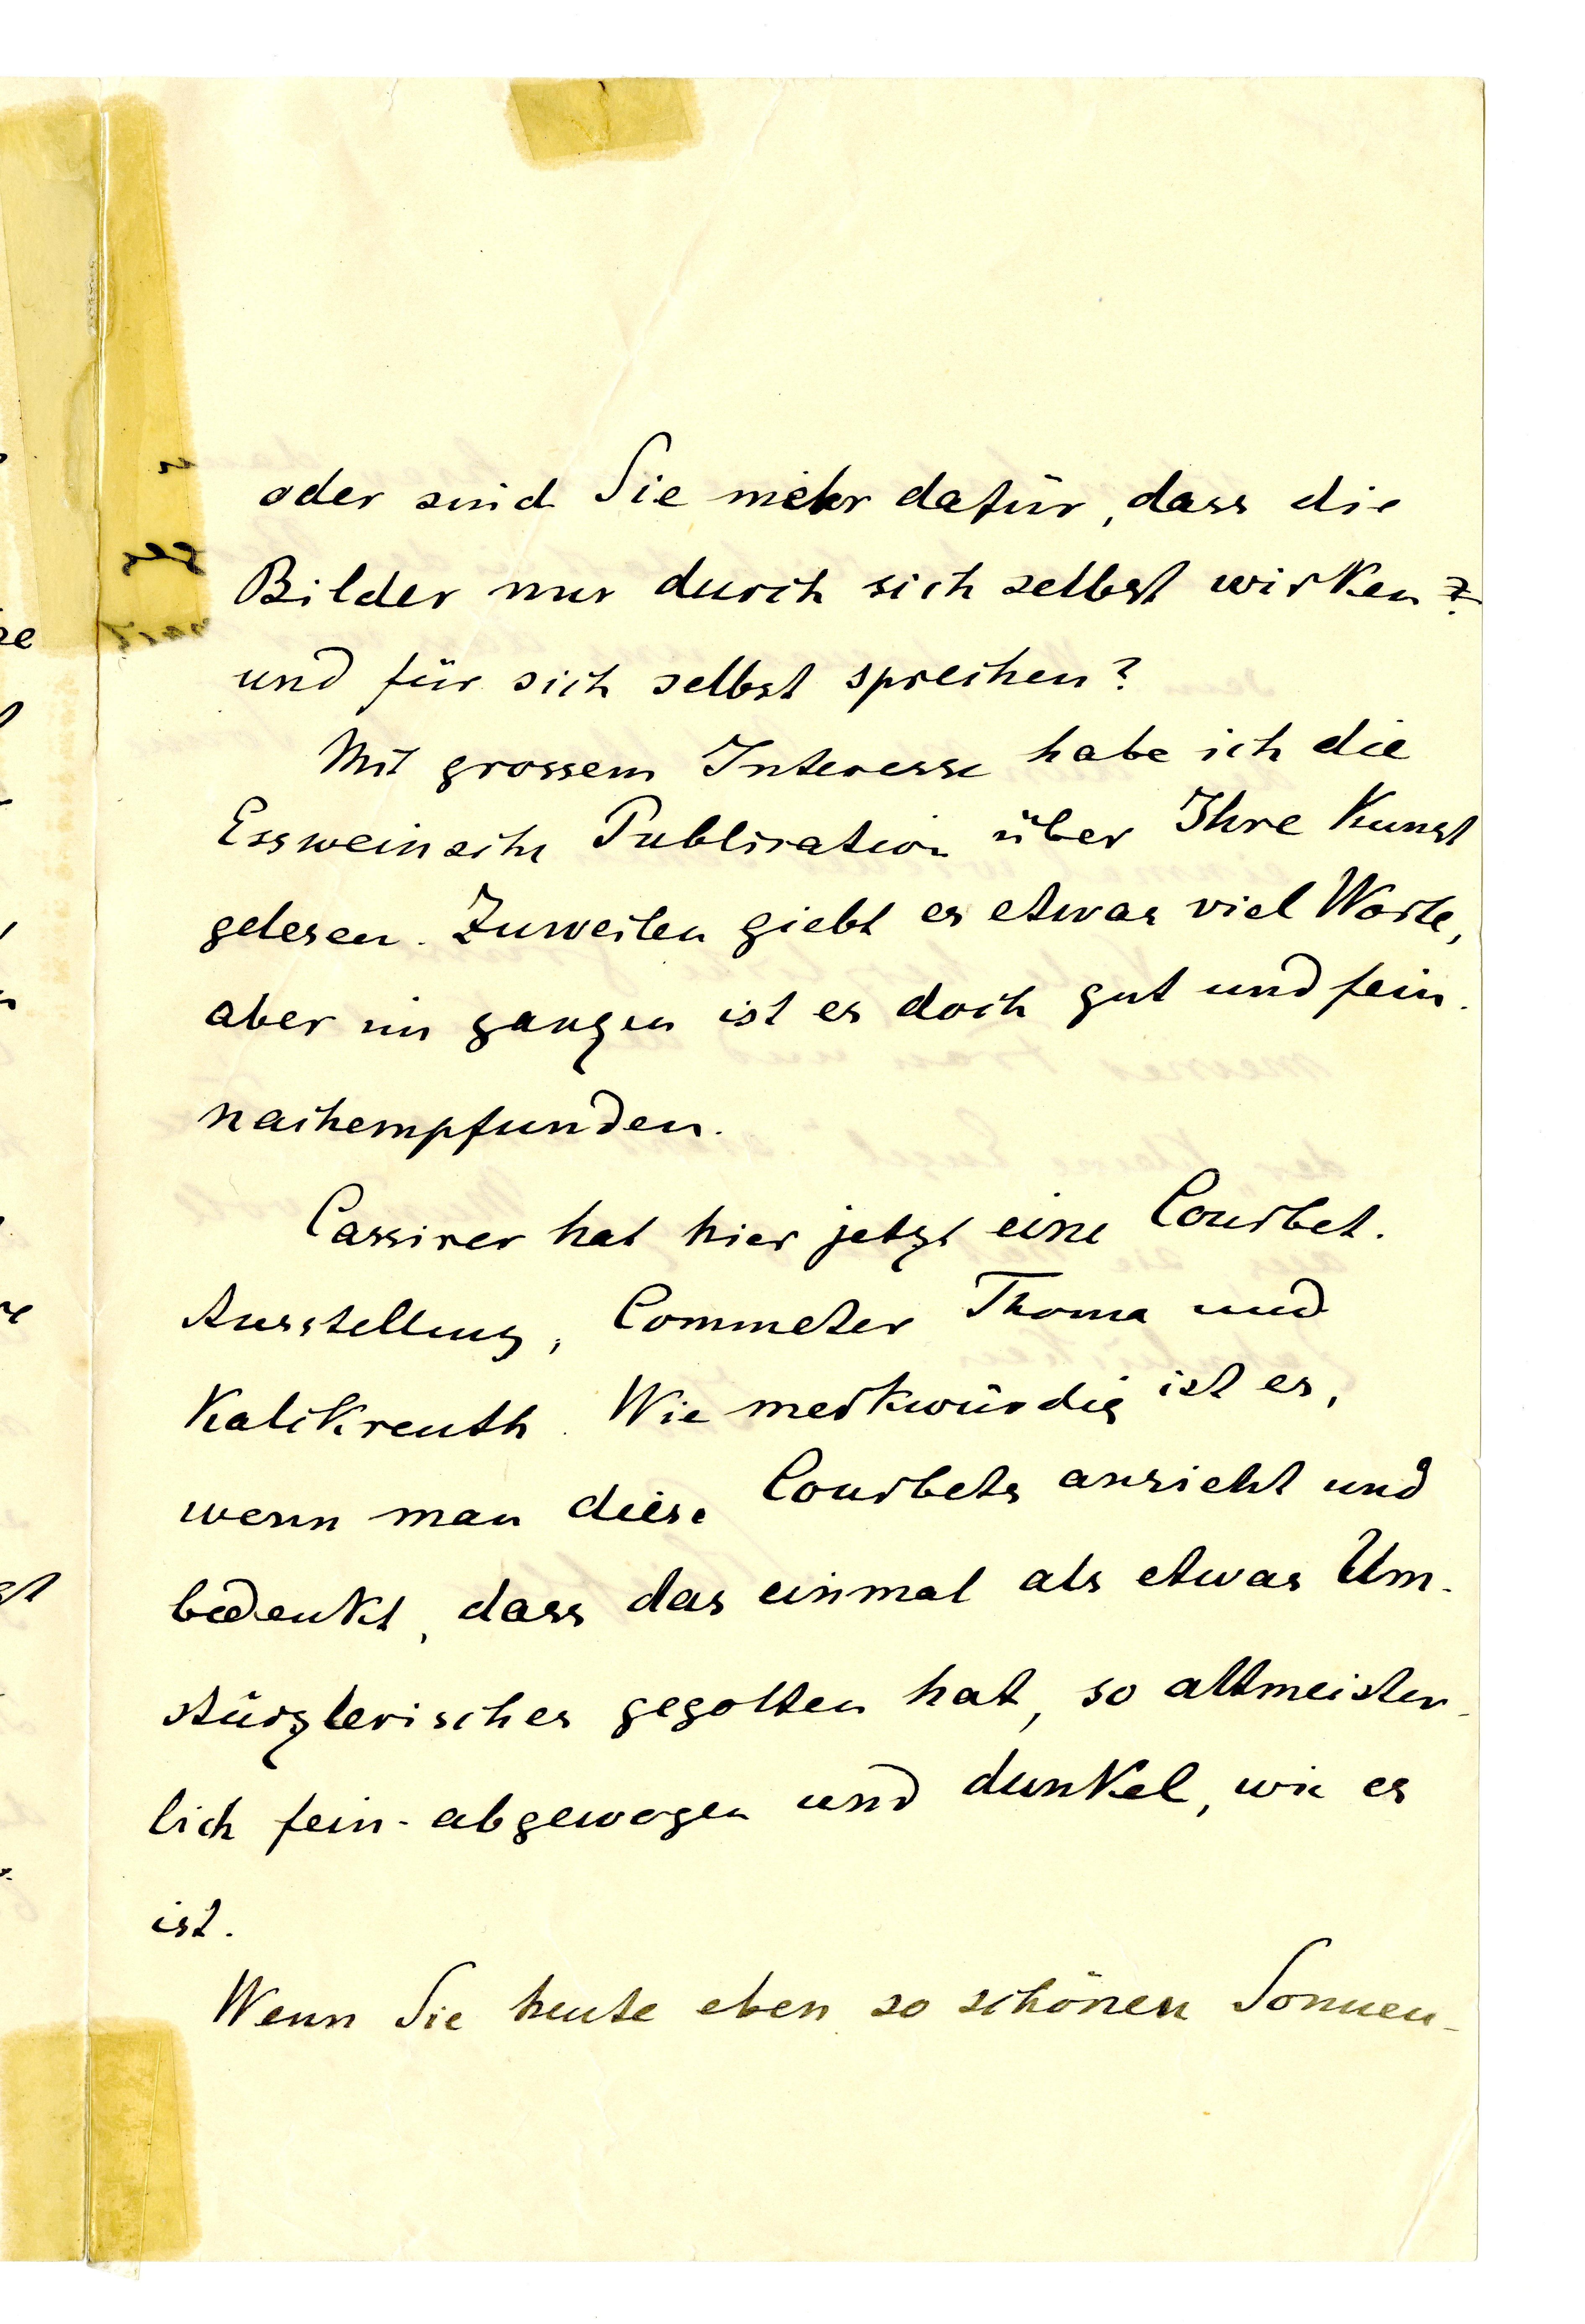 oder sind Sie mehr dafür, dass die
Bilder nur durch sich selbst wirken ?
und für sich selbst sprechen?
Mit grossem Interesse habe ich die
Essweinsche Publication über Ihre Kunst
gelesen. Zuweilen giebt es etwas viel Worte,
aber im ganzen ist es doch gut und fein
nachempfunden.
Cassirer hat hier jetzt eine Courbet-
Ausstellung, Commeter Thoma und
Kalkreuth. Wie merkwürdig ist es,
wenn man diese Courbets ansieht und
bedenkt, dass das einmal als etwas Um-
stürzlerisches gegolten hat, so altmeister-
lich fein-abgewogen und dunkel, wie es
ist.
Wenn Sie heute eben so schönen Sonnen-